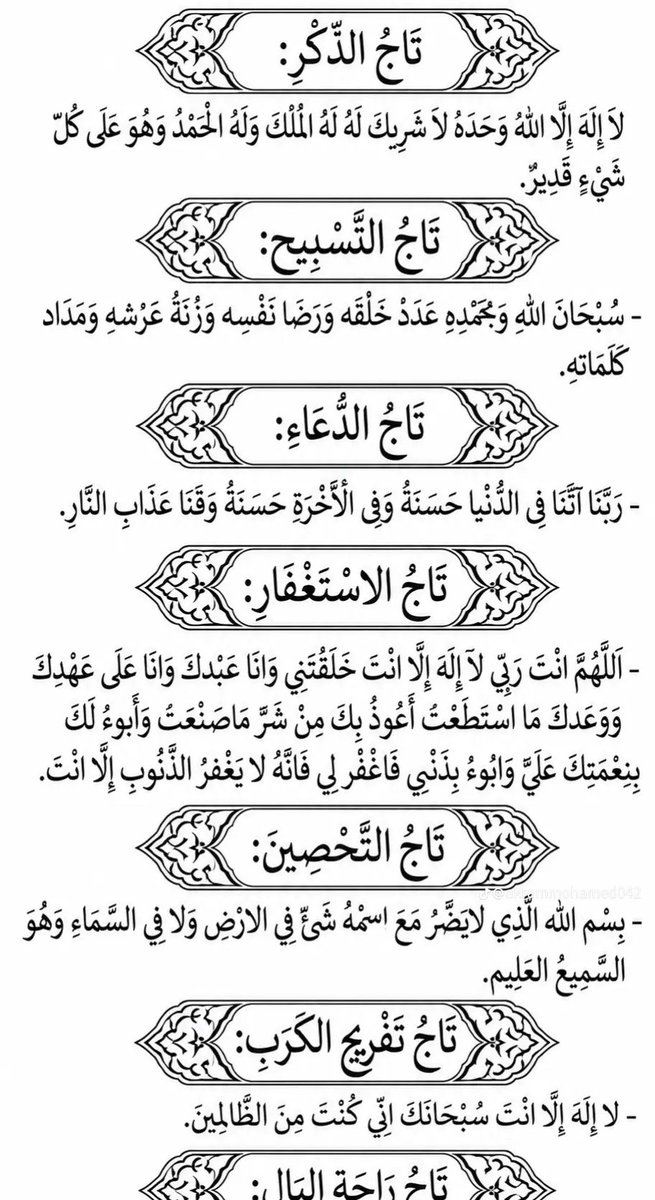 تَاجُ الذِّكْرِ:
لاَ إِلَهَ إِلَّا اللهُ وَحَدَهُ لاَ شَرِيكَ لَهُ لَهُ المُلْكَ وَلَهُ الحْمَدُ وَهُوَ عَلَى كُلّ
شَيْءٍ قَدِيرٌ.
تَاجُ التَّسْبِيح:
- سُبْحَانَ اللهِ وَبِحَمْدِهِ عَدَدْ خَلْقَه وَرَضَا نَفْسِه وَزُنَةُ عَرْشهِ وَمَدَاد
كَلَمَاتهِ.
تَاجُ الدُّعَاءِ:
- رَبَّنَا آتَّنَا فِى الدُّنْيا حَسَنَةُ وَفِى الْأَخْرَةِ حَسَنَةُ وَقَنَا عَذَابِ النَّارِ.
تَاجُ الاسْتَغْفَارِ:
- اَللَّهُمَّ انْتَ رَبِّي لآَ إِلَهَ إِلَّا انْتَ خَلَقْتَنِي وَانَا عَبْدكَ وَانَا عَلَى عَهْدِكَ
وَوَعَدكَ مَا اسْتَطَعْتُ أَعُوذُ بِكَ مِنْ شَرَّ مَاصَنْعَتُ وَأَبوءُ لَكَ
بِنِعْمَتِكَ عَلَيَّ وَابُوءُ بِذَنْبِي فَاغْفْر لِي فَانَّهُ لا يَغْفرُ الذَّنُوبِ إِلَّا انْتَ.
تَاجُ التَّحْصِينَ:
- بِسْم الله الَّذِي لايَضَّرُ مَعَ اسمْهُ شَئّ فِي الارْضِ وَلا فِي السَّمَاءِ وَهُوَ
السَّمِيعُ العَلِيم.
تَاجُ تَفْرِيج الكَرَبِ:
- لا إِلَهَ إِلَّا انْتَ سُبْحَانَكَ اِنِّي كُنْتَ مِنَ الظَّالِمِينَ.
تَاجُ رَاحَةِ البَالِ: